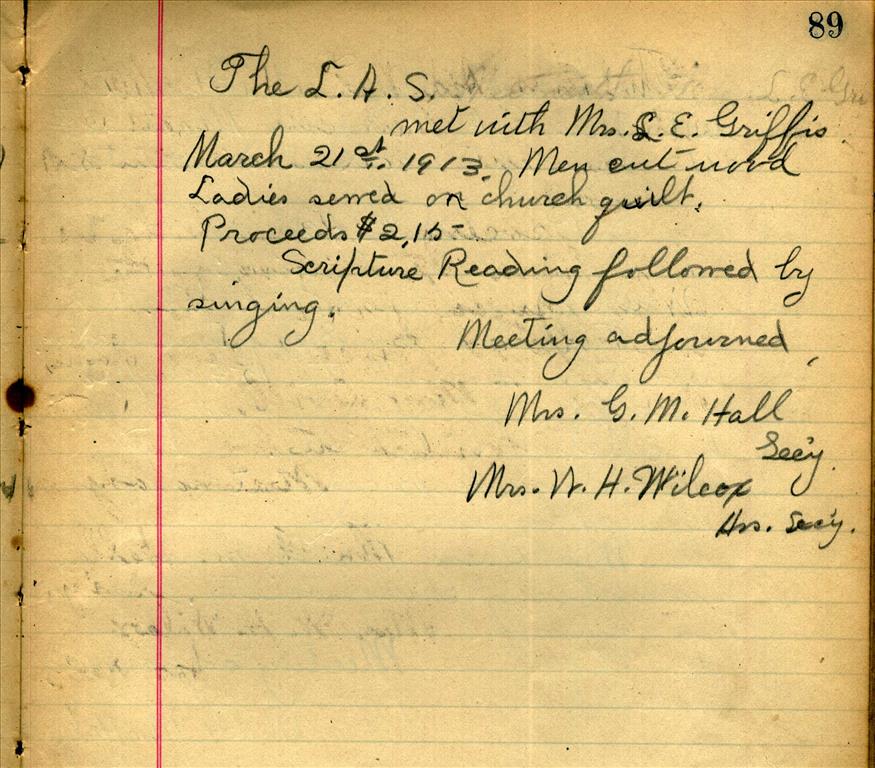 89
The L. A. S.
met with Mrs. L. E. Griffis
March 21st. 1913. Men cut wood
Ladies sewed on church quilt.
Proceeds $2.15
Scripture Reading followed by
singing.
Meeting adjourned,
Mrs. G. M. Hall
Sec'y.
Mrs. W. H. Wilcox
Ass. Sec'y.